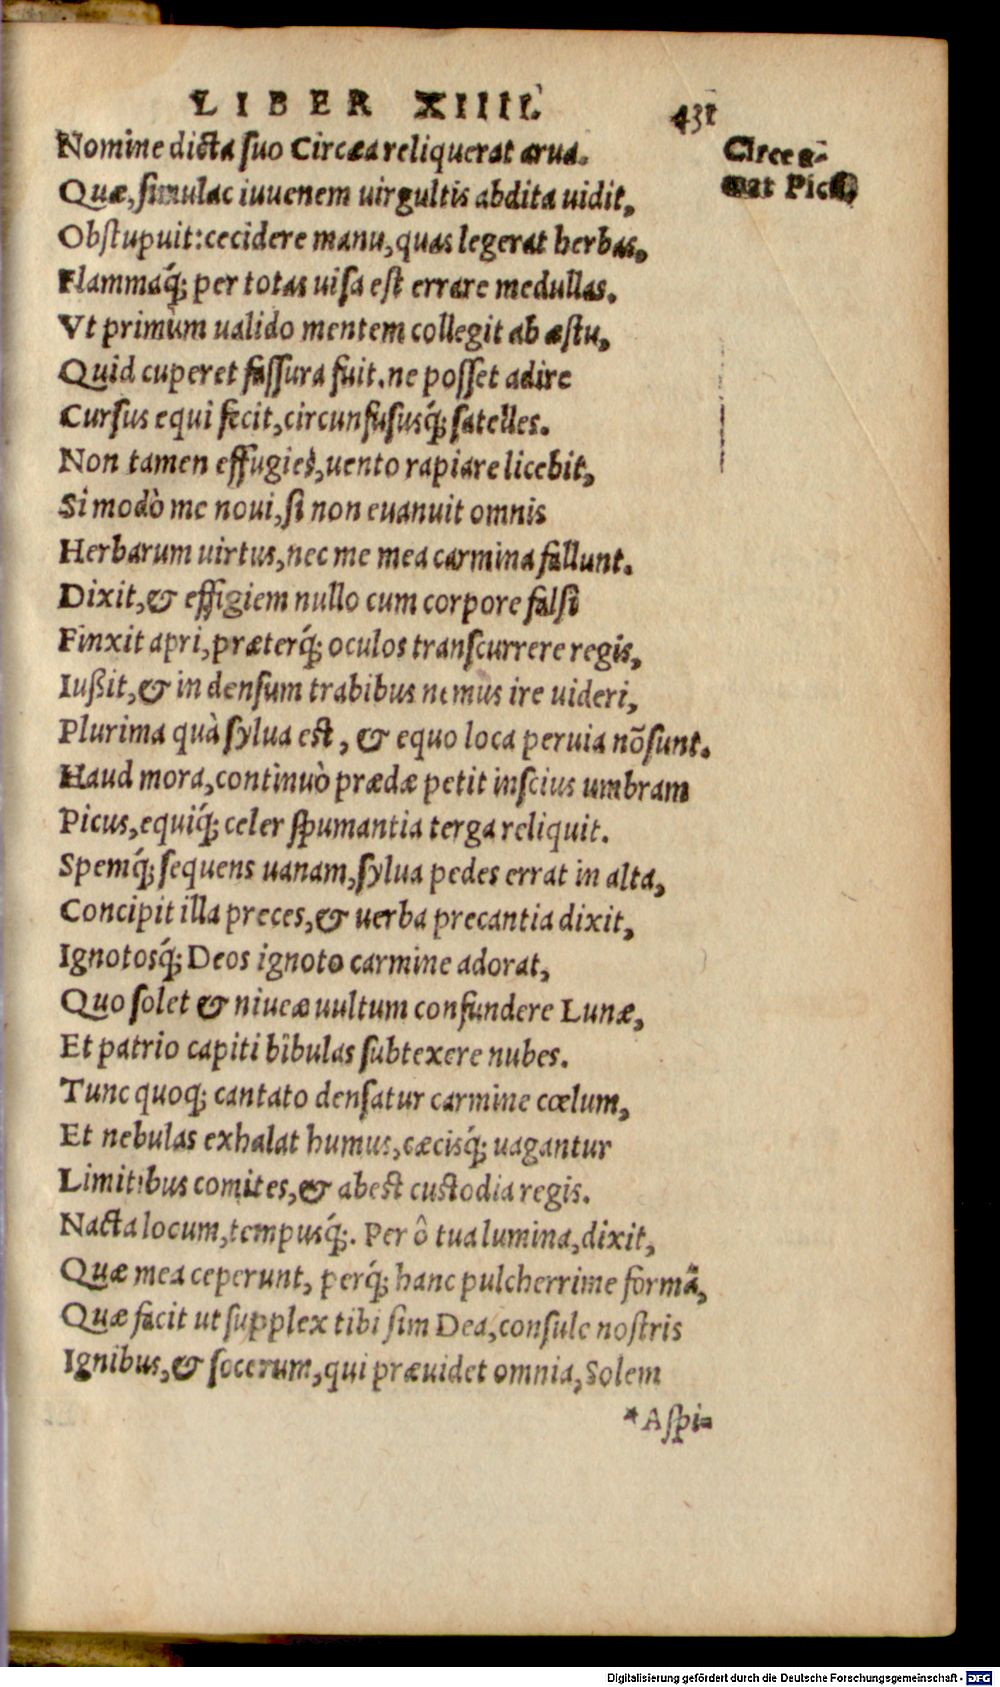 LIBER XIIII. 431
Nomine dicta suo Circæa reliquerat arua.
Circe a-
mat Picũ
Quæ, simulac iuuenem uirgultis abdita uidit,
Obstupuit: cecidere manu, quas legerat herbas,
Flammaq́; per totas uisa est errare medullas.
Vt primùm ualido mentem collegit ab æstu,
Quid cuperet fassura fuit. ne posset adire
Cursus equi fecit, circunfususq́; satelles.
Non tamen effugies, uento rapiare licebit,
Si modò me noui, si non euanuit omnis
Herbarum uirtus, nec me mea carmina fallunt.
Dixit, & effigiem nullo cum corpore falsi
Finxit apri, præterq́; oculos transcurrere regis,
Iußit, & in densum trabibus nemus ire uideri,
Plurima quà sylua est, & equo loca peruia nõ sunt.
Haud mora, continuò prædæ petit inscius umbram
Picus, equiq́; celer spumantia terga reliquit.
Spemq́; sequens uanam, sylua pedes errat in alta,
Concipit illa preces, & uerba precantia dixit,
Ignotosq́; Deos ignoto carmine adorat,
Quo solet & niueæ uultum confundere Lunæ,
Et patrio capiti bibulas subtexere nubes.
Tunc quoq; cantato densatur carmine cœlum,
Et nebulas exhalat humus, cæcisq́; uagantur
Limitibus comites, & abest custodia regis.
Nacta locum, tempusq́;. Per ô tua lumina, dixit,
Quæ mea ceperunt, perq́; hanc pulcherrime formã,
Quæ facit ut supplex tibi sim Dea, consule nostris
Ignibus, & socerum, qui præuidet omnia, Solem
*Aspi-
Digitalisierung gefördert durch die Deutsche Forschungsgemeinschaft - DFG